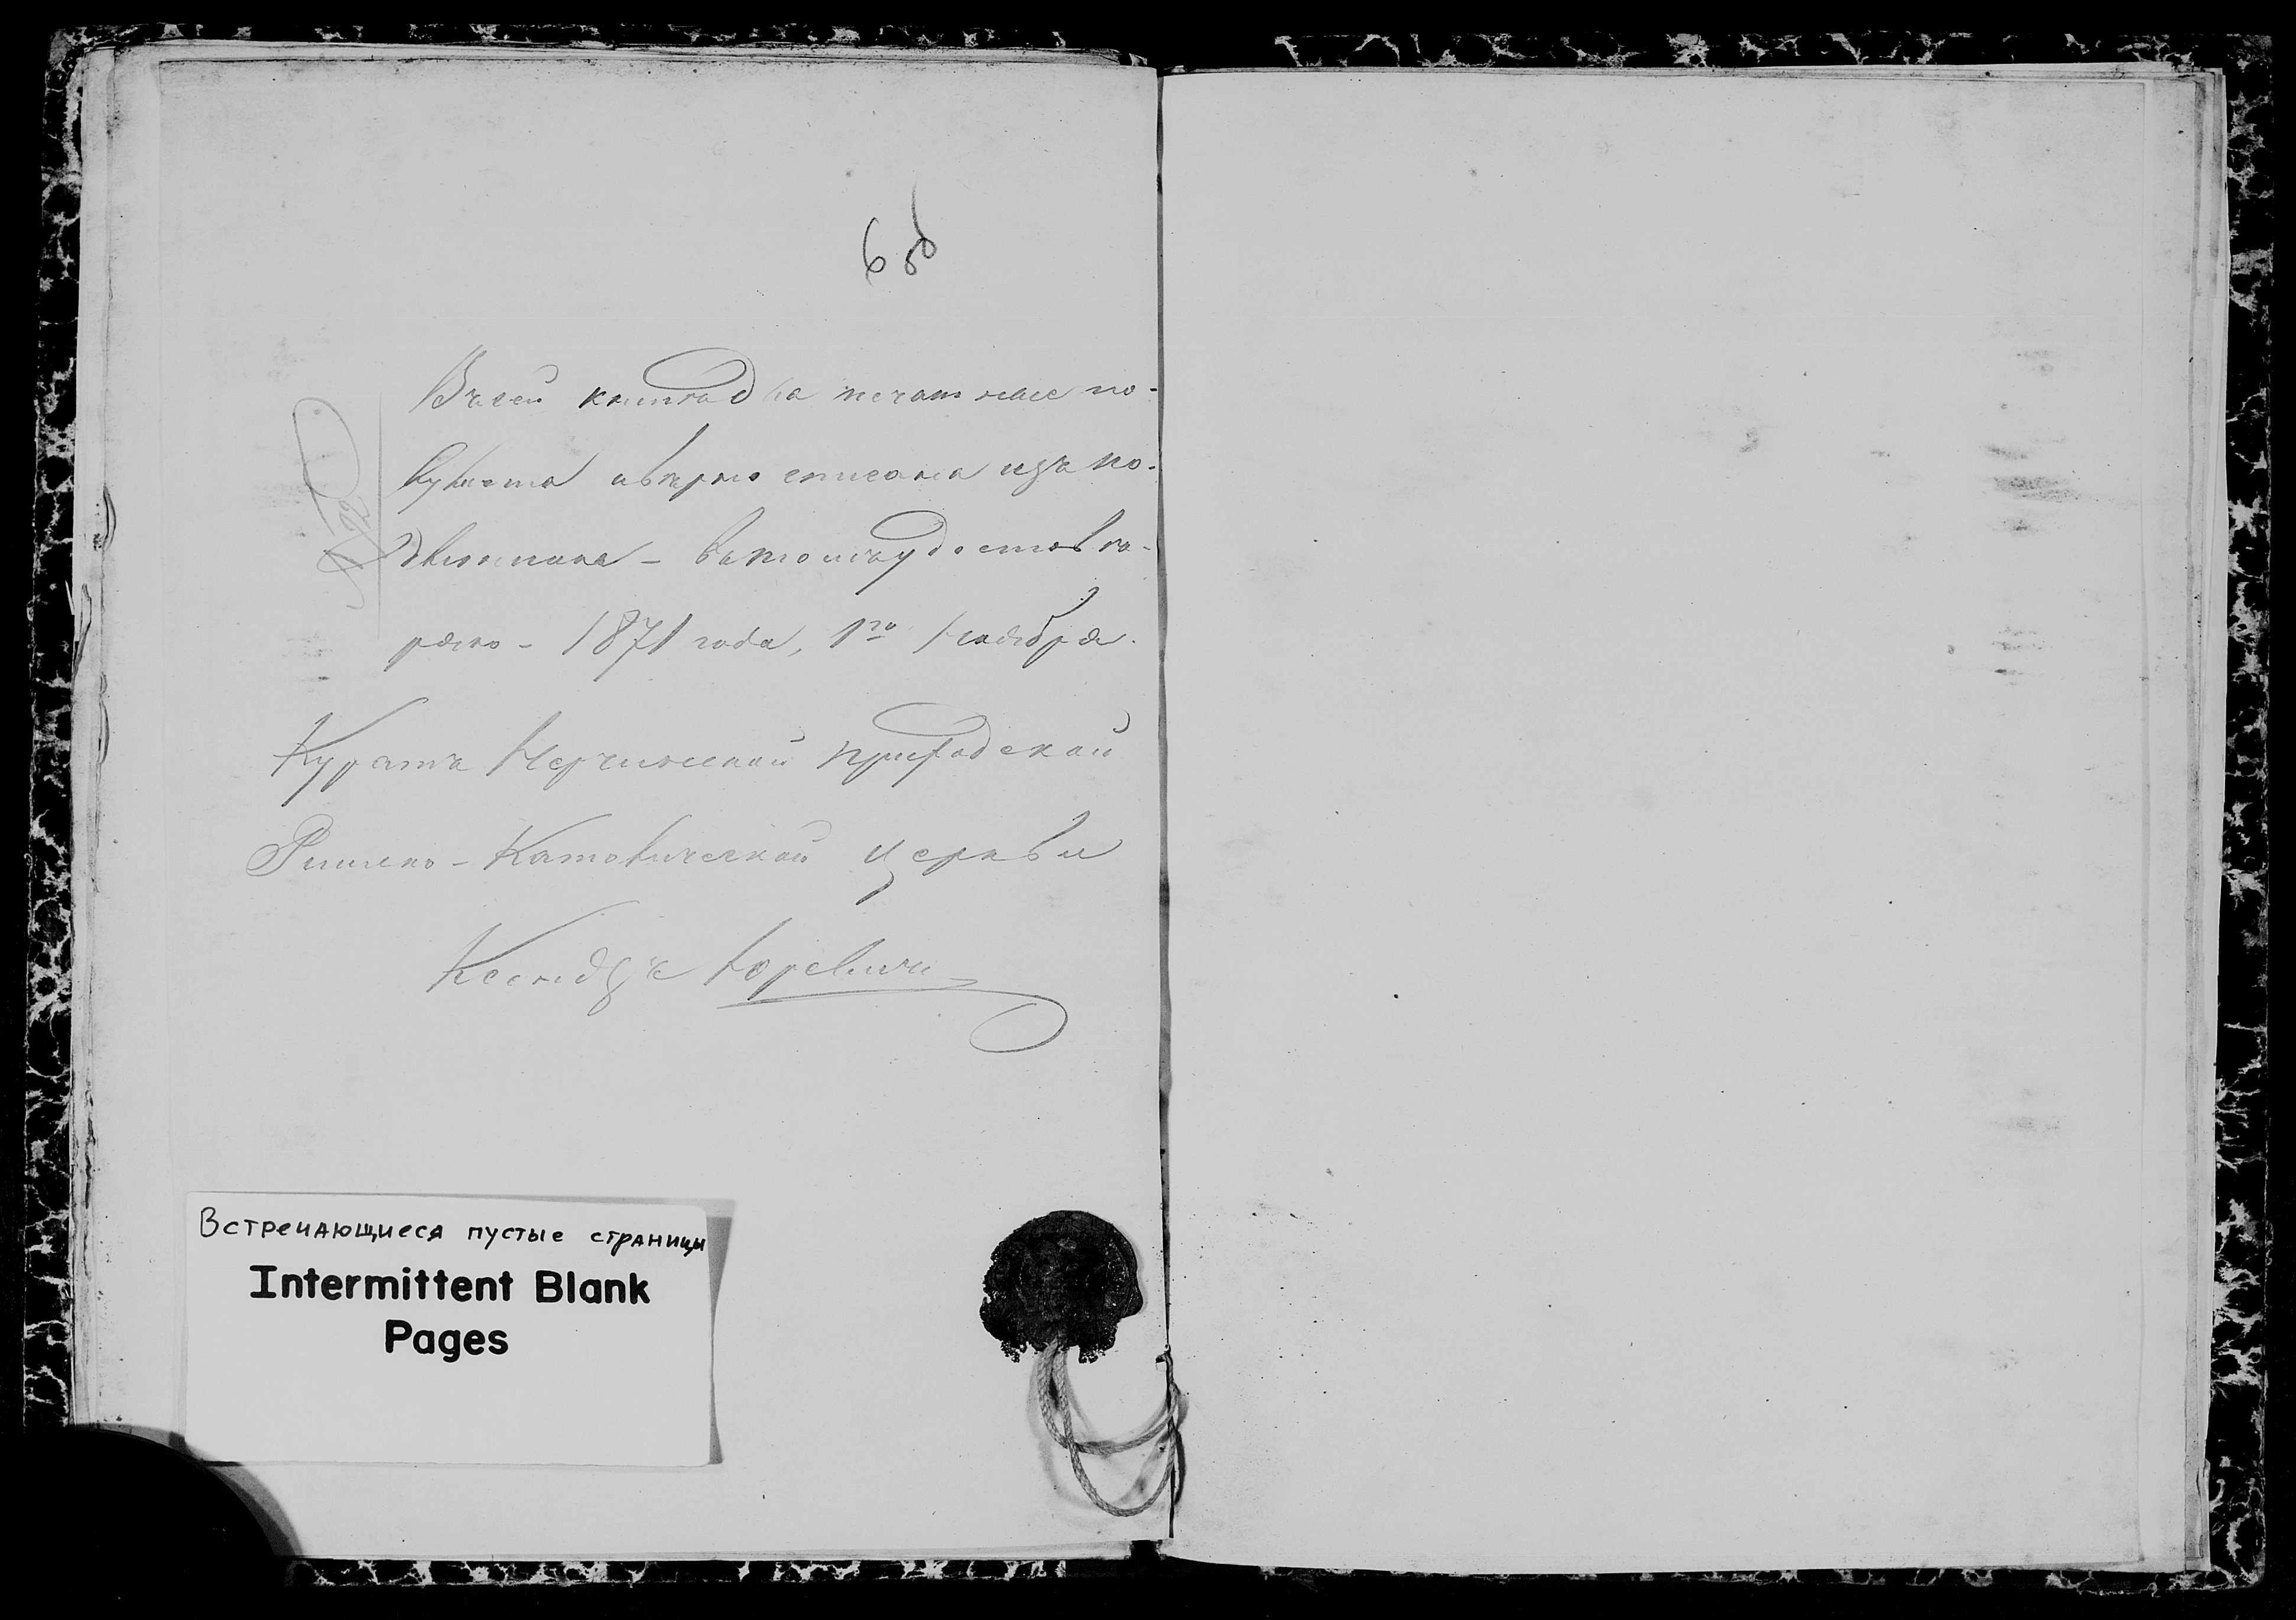 6 об
Въ сей книгѣ одна печатная по-
лулиста и вѣрно списана изъ по-
длинника – въ томъ удостовѣ-
ряю – 1871 года, 1го Ноября.
№ 22
Куратъ Нерчинской приходской
Римско-Католической церкви
Ксендзъ Юревичъ
Встречающиеся пустые страницы
Intermittent Blank
Pages